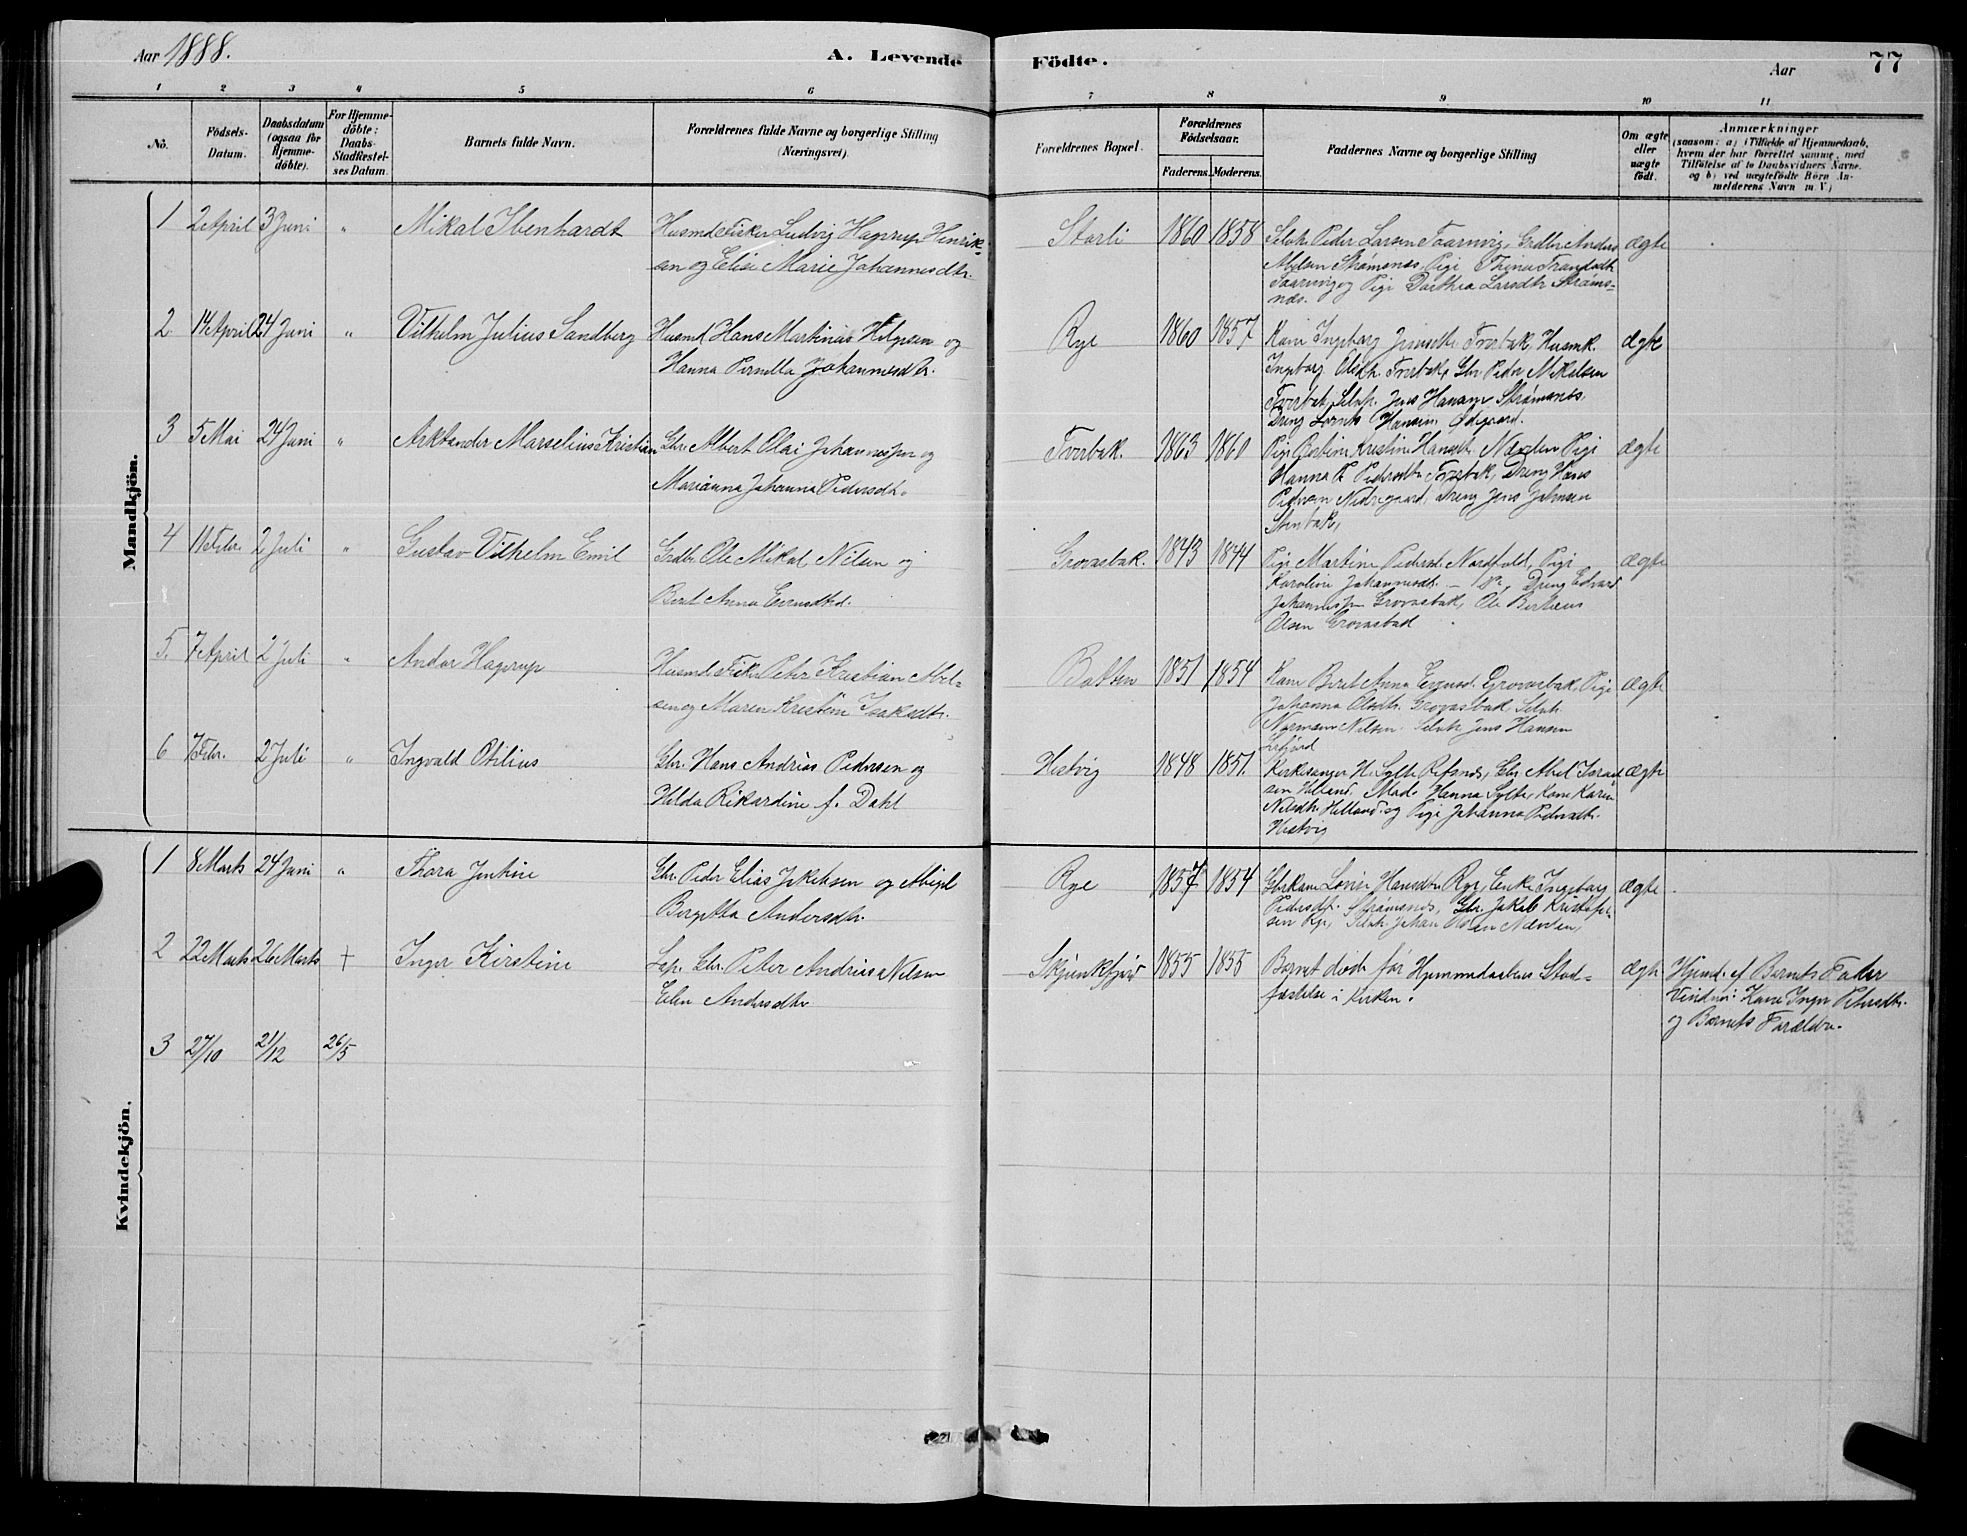 Aar 1888.
A. Levende Födte.
Aar
77
1 2 3 4 5 6 7 8 9 10 11
No.
Födsels-Datum.
Daabsdatum (ogsaa for Hjemme-döbte).
For Hjemme-döbte: Daabs-Stadfæstel-ses Datum.
Barnets fulde Navn.
Forældrenes fulde Navne og borgerlige Stilling (Næringsvei).
Forældrenes Bopæl.
Forældrenes Födselsaar.
Faderens. Moderens.
Faddernes Navne og borgerlige Stilling
Om ægte eller uægte födt.
Anmærkninger
(saasom: a) i Tilfælde af Hjemmedaab,
hvem der har forrettet samme, med
Tilföielse af to Daabsvidners Navne.
og b) ved uægtefödte Börn An-
melderens Navn m. V.)
Mandkjön.
1 2 April 3 Juni " Mikal Ibenhardt Husmd Fisker Ludvig Hagerup Henrik-
sen og Elise Marie Johannesdtr.
Storli 1860 1858 Selvh. Peder Larsen Taarnvig, Grdbr Anders
Strømsnes, Pige
Taarnvig og Pige Dorthea Larsdtr Strøms-
nes.
ægte
2. 14 April 24 Juni " Vilhelm Julius Sandberg Husmd Hans Martinus og
Hanna Pernella Johannesdtr.
Rye 1860 1857 Kone Ingeborg Tverbak, Husmk.
Ingeborg Olsdtr. Tverbak, Gbr Peder Mikalsen
Tverbak, Selvh. Jens Hansen Strømsnes,
Dreng Hansen Ødegaard.
ægte
3 5 Mai 24 Juni " Arktander Marselius Kristian Gbr. Albert Olai Johannessen og
Marianna Johanna Pedersdtr.
Tverbak. 1863 1860 Pige Kristine Hansdtr. Pige
Hanna P. Pedersdtr Tverbak, Dreng Hans
Pedersen Nedregaard, Dreng Jens Johnsen
ægte
4 11 Febr. 2 Juli " Gustav Vilhelm Emil Grdbr. Ole Mikal Nilsen og
Berit Anna
Grovasbak. 1843 1844 Pige Martine Pedersd. Nordfold, Pige
Karoline Johannesdt. Dreng Edvard
Johannessen Grovasbak, Ole
Olsen
ægte
5. 7 April 2 Juli " Andor Hagerup Husmd. Fisker Peter Kristian Abel-
sen og Maren Kristine Isaksdtr.
1851 1854 Kone Berit Anna Grovasbak, Pige
Johanna Olsdtr. Grovasbak, Selvh.
Normann Nilsen. Selvh Jens Hansen
ægte
6 7 Febr. 2 Juli " Ingvald Otilius Gbr. Hans Andrias Pedersen og
Hilda Rikardine f. Dahl
Hestvig 1848 1851. Kirkesanger H. Sylte Gbr Abel
sen Helland. Mad. Hanna Sylte, Kone Karen
Nilsdtr. Helland og Pige Johanna Pedersdtr.
Hestvig
ægte
Kvindekjön.
1 8 Marts 24 Juni " Thora Jentine Gbr. Peder Elias Jakobsen og Abigel
Bergitta Andersdtr.
Rye 1857 1854 Gbrkone Lovise Hansdtr Rye, Enke Ingeborg
Pedersdtr. Strømsnes, Gbr. Jakob Kristofer-
sen Rye, Selvh. Johan
ægte
2 22 Marts 26 Marts + Inger Kirstine Lap. Gbr. Peter Andrias Nilsen
Elen Andersdtr
1855 1855 Barnet døde før Hjemmedaabens Stad-
fæstelse i Kirken.
ægte
Hjemd. af Barnets Fader
Vidner: Kone Inger Petersdtr.
og Barnets Forældre.
3 27/10 21/12 26/5